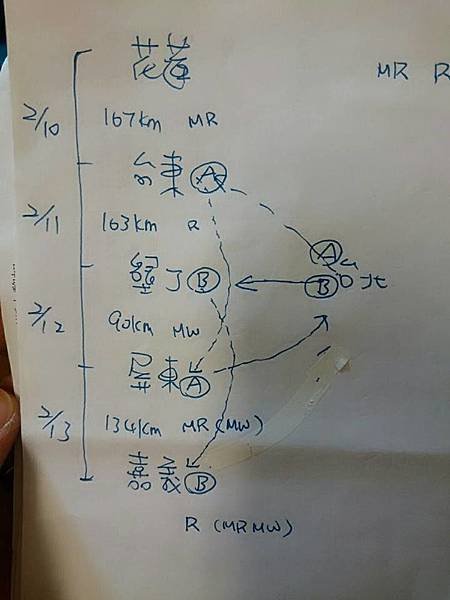 花蓮
MR R
2/10 167km MR
台東 A
2/11 163km R
A
墾丁 B
B 台北
2/12 90km MW
屏東 A
2/13 134km MR (MW)
嘉義 B
R (MR MW)